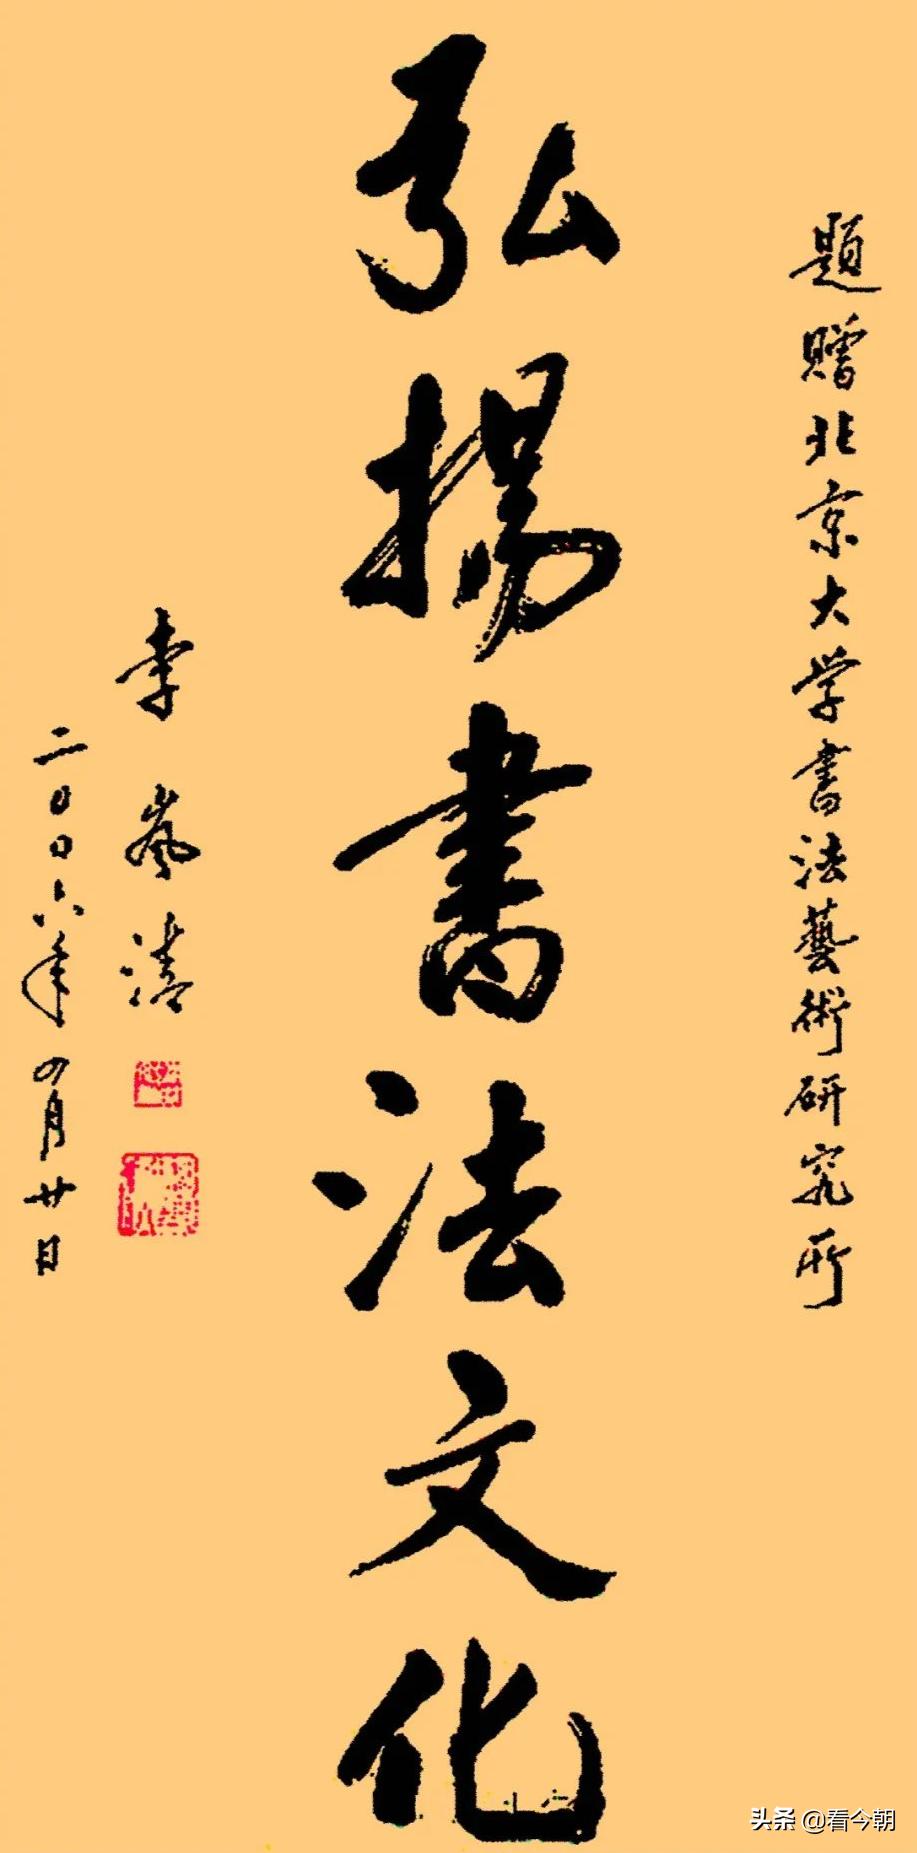 題贈北京大学書法藝術研究所
弘揚書法文化
李嵐清
二〇〇六年四月廿日
头条 @看今朝